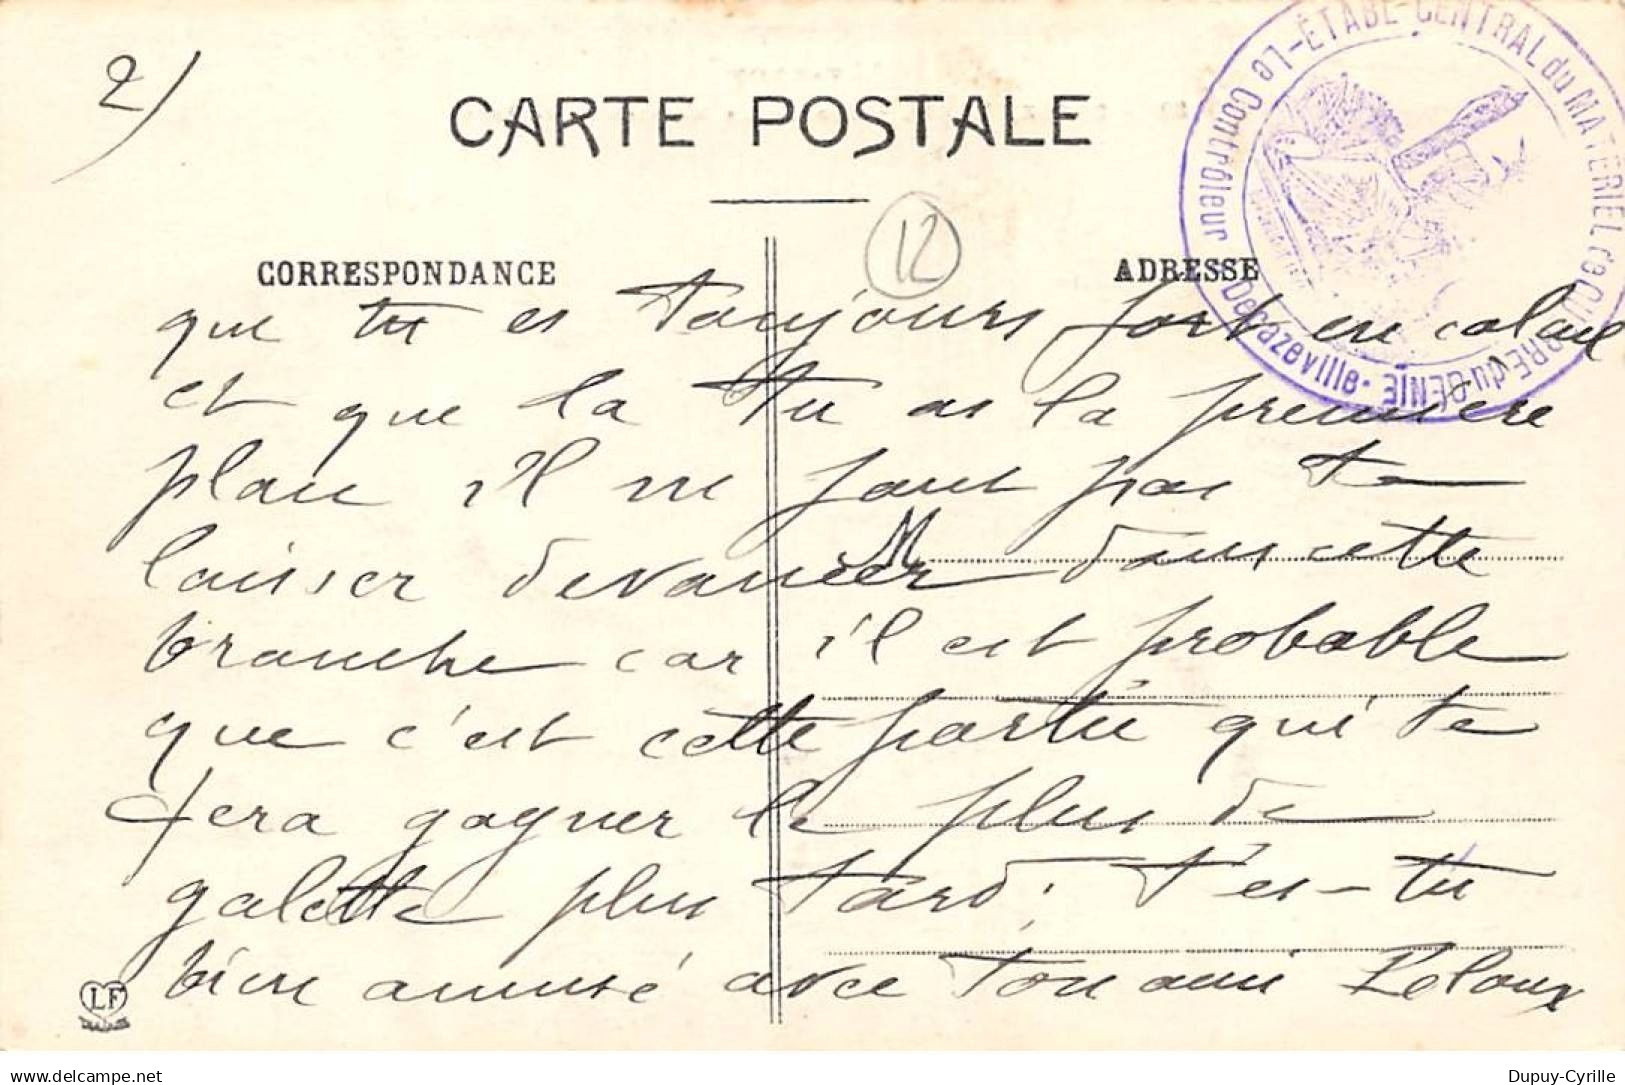 2)
CARTE POSTALE
12
CORRESPONDANCE
ADRESSE
Le Contrôleur - ÉTABt CENTRAL du MATÉRIEL de GUERRE du GENIE - Decazeville
que tu es toujours fort en calcul
et que la tu as la premiere
place il ne faut pas te
laisser devancer dans cette
M
branche car il est probable
que c'est cette partie qui te
fera gagner le plus de
galette plus tard. T'es-tu
bien amusé avec ton ami
LF
delcampe.net
Dupuy-Cyrille